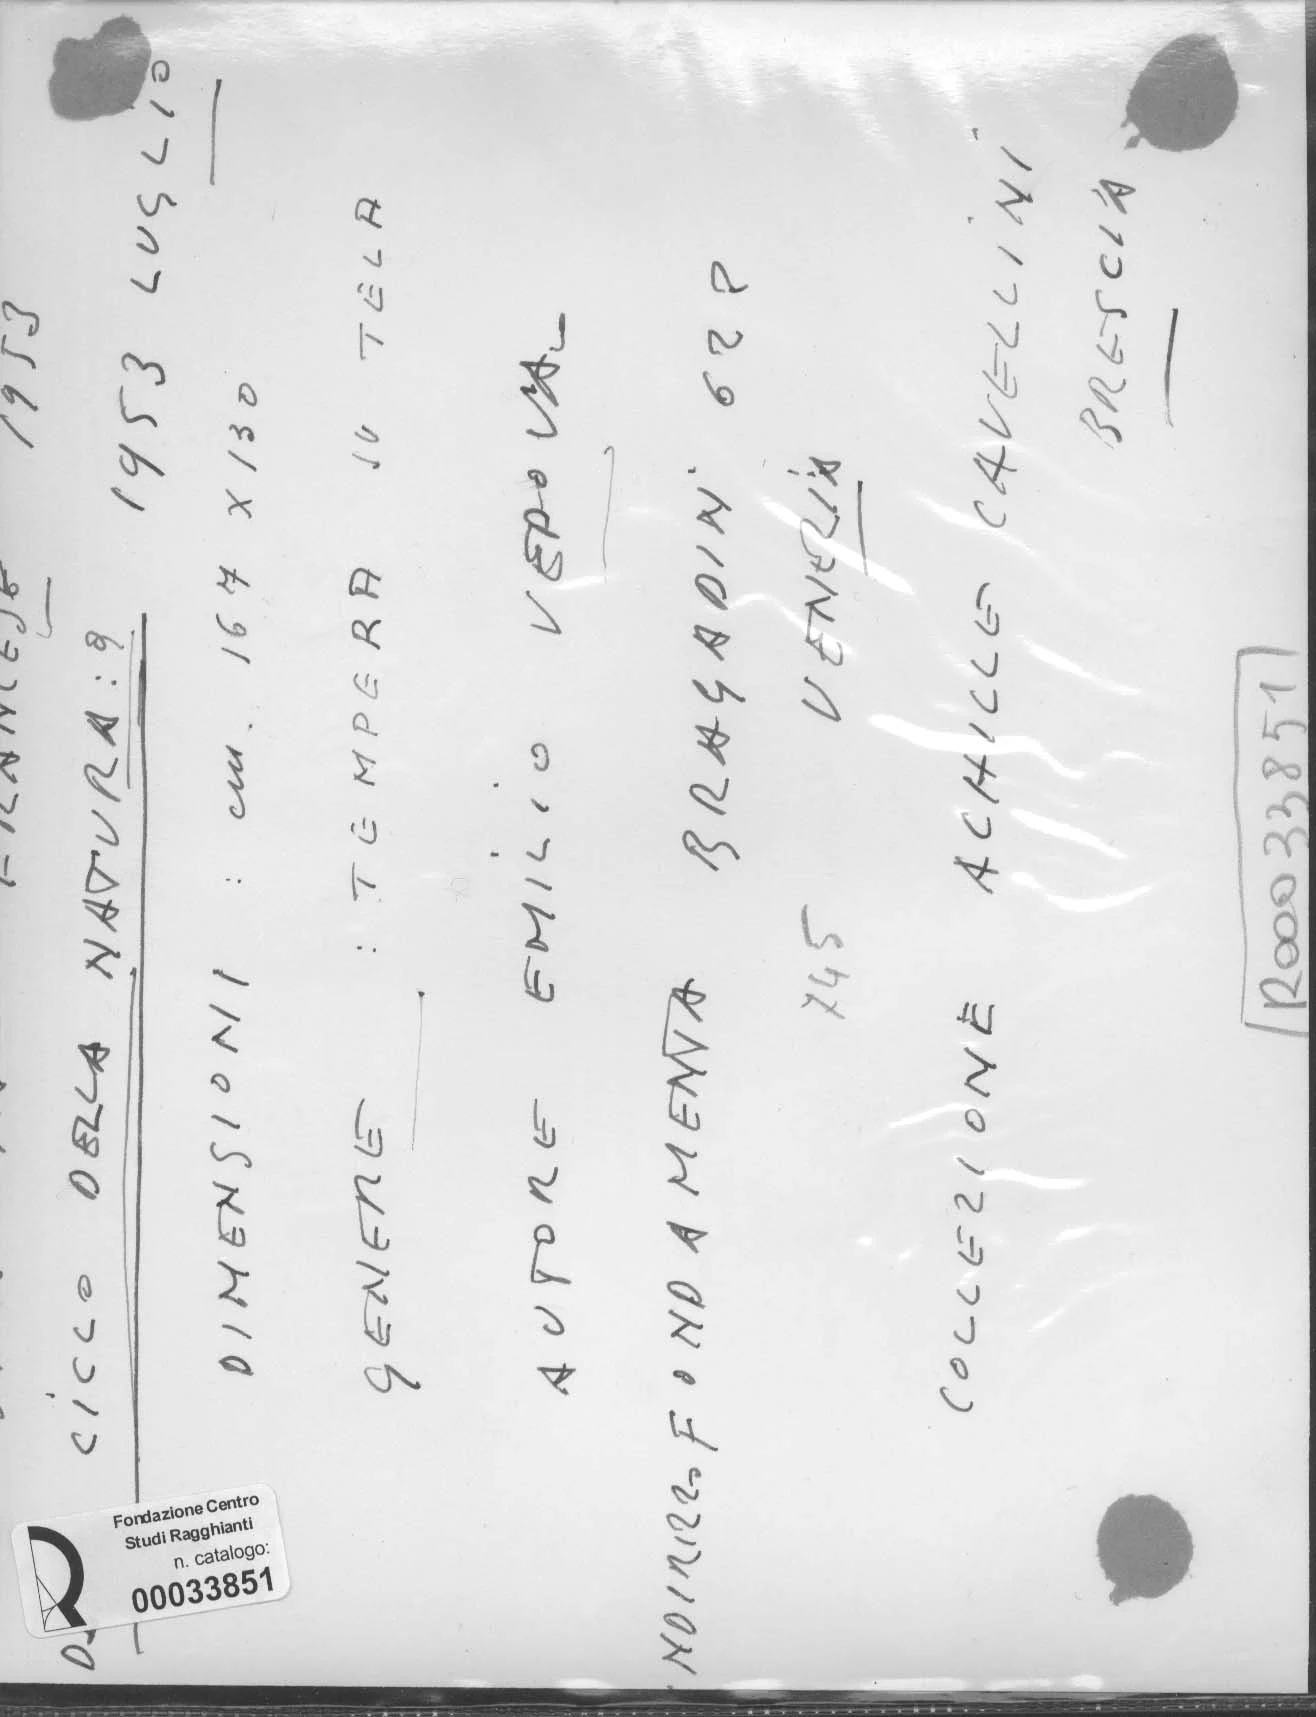 1953
CICLO DELLA NATURA: 9 1953 LUGLIO
DIMENSIONI : cm. 164 X 130
GENERE : TEMPERA SU TELA
AUTORE EMILIO VEDOVA
NDIRIZZO FONDAMENTA BRAGADIN 622
VENEZIA
745
COLLEZIONE ACHILLE CAVELLINI
BRESCIA
R00033851
Fondazione Centro
Studi Ragghianti
n. catalogo:
00033851